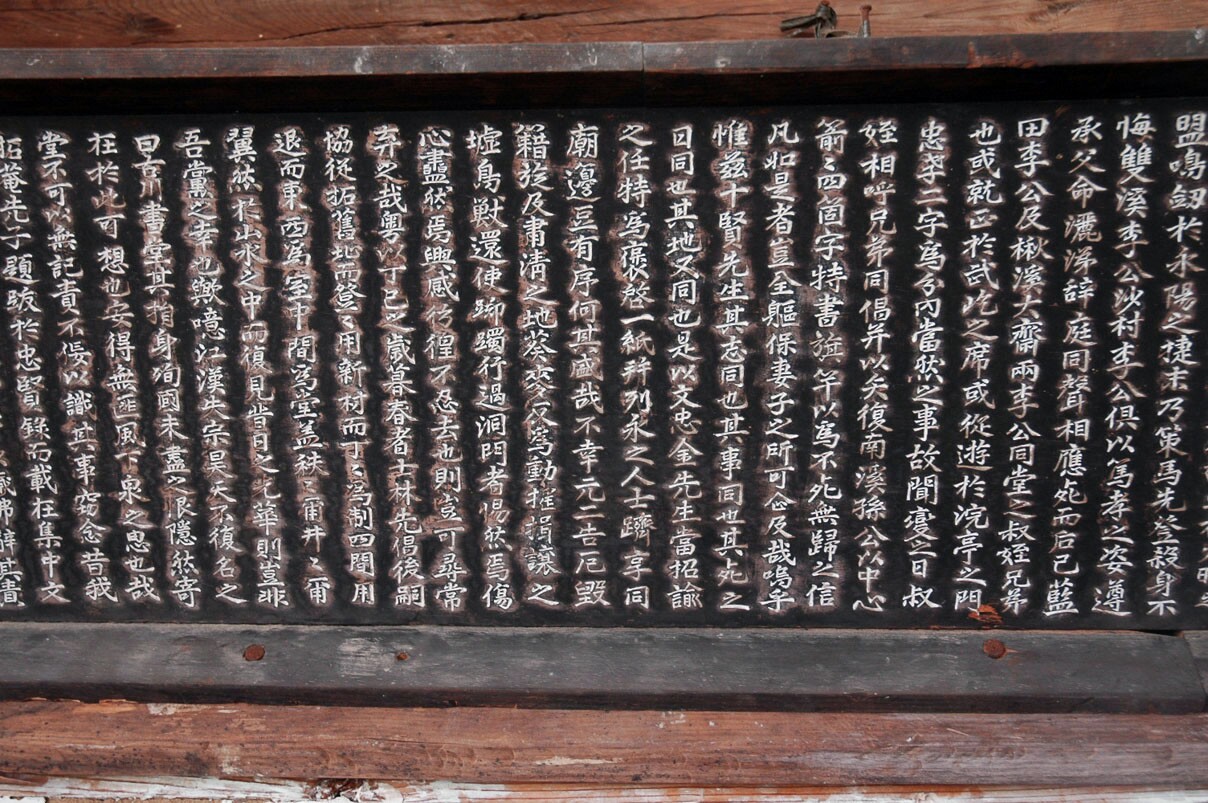 盟鳴劒於永陽之捷末乃策馬先登殺身不
悔雙溪李公沙村李公俱以篤孝之姿遵
承父命灑涕辞庭同聲相應死而后已藍
田李公及楸溪大齋兩李公同堂之叔姪兄弟
也或就正於武屹之席或從遊於浣亭之門
忠孝二字爲分內當然之事故聞變之日叔
姪相呼兄弟同倡并以矢復南溪孫公以中心
箭之四箇字特書旗竿以爲不死無歸之信
凡如是者豈全軀保妻子之所可企及哉嗚乎
惟玆十賢先生其志同也其事同也其死之
日同也其地又同也是以文忠金先生當招諭
之任特爲褒啓一紙幷列永之人士躋享同
廟籩豆有序何其盛哉不幸元二告厄毁
籍旋及肅淸之地葵麥爲動摧損讓之
墟鳥獸還使躑躅行過洞門者惕然焉傷
心衋然焉興感彷徨不忍去也則豈可尋常
弃之哉粤以丁巳之歲暮春者士林先倡後嗣
協從拓舊地而營之用新材而丁之爲制四間用
退而東西爲室中間爲堂盖秩之爾井之爾
翼然於山水之中而復見昔日之光華則豈非
吾黨之幸也歟噫江漢失宗昊天不復名之
曰書堂其捐身殉國未盡之恨隱然寄
在於此可想也安得無匪風下泉之思也哉
堂不可以無記責不佞以識其事窃念昔我
拓菴先子題跋於忠賢錄而載在集中文